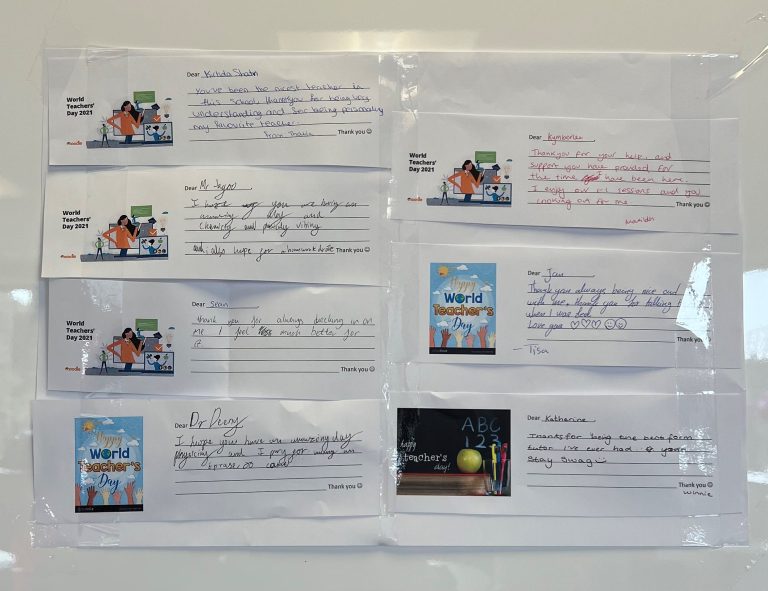 World
Teachers'
Day 2021
Dear
You've been the nicest teacher in
this school thankyou for being very
understanding and for being personally
my favourite teacher.
from
Thank you ☺
World
Teachers'
Day 2021
Dear Mr
I hope you are having an
amazing day and
chemistry and
also hope for a homework
Thank you ☺
World
Teachers'
Day 2021
Dear Sean
thank you for always checking in on
me I feel much better for
it
Thank you ☺
Happy
World
Teacher's
Day
Dear
I hope you have an amazing day
physicing and I pray for
Thank you ☺
World
Teachers'
Day 2021
Dear Kymberlee
Thankyou for your help, and
support you have provided for
the time have been here.
I enjoy our r.s sessions and you
looking out for me
Happy
World
Teacher's
Day
Dear Jan
Thank you always being nice and
with me, thank you for talking
when I was
Love you ♡♡♡ ☺☺
Thank you
- Tisa
happy
teacher's
day!
ABC
123
Dear Katherine
Thanks for being the best form
tutor I've ever had.
Stay Swag
Thank you ☺
Winnie